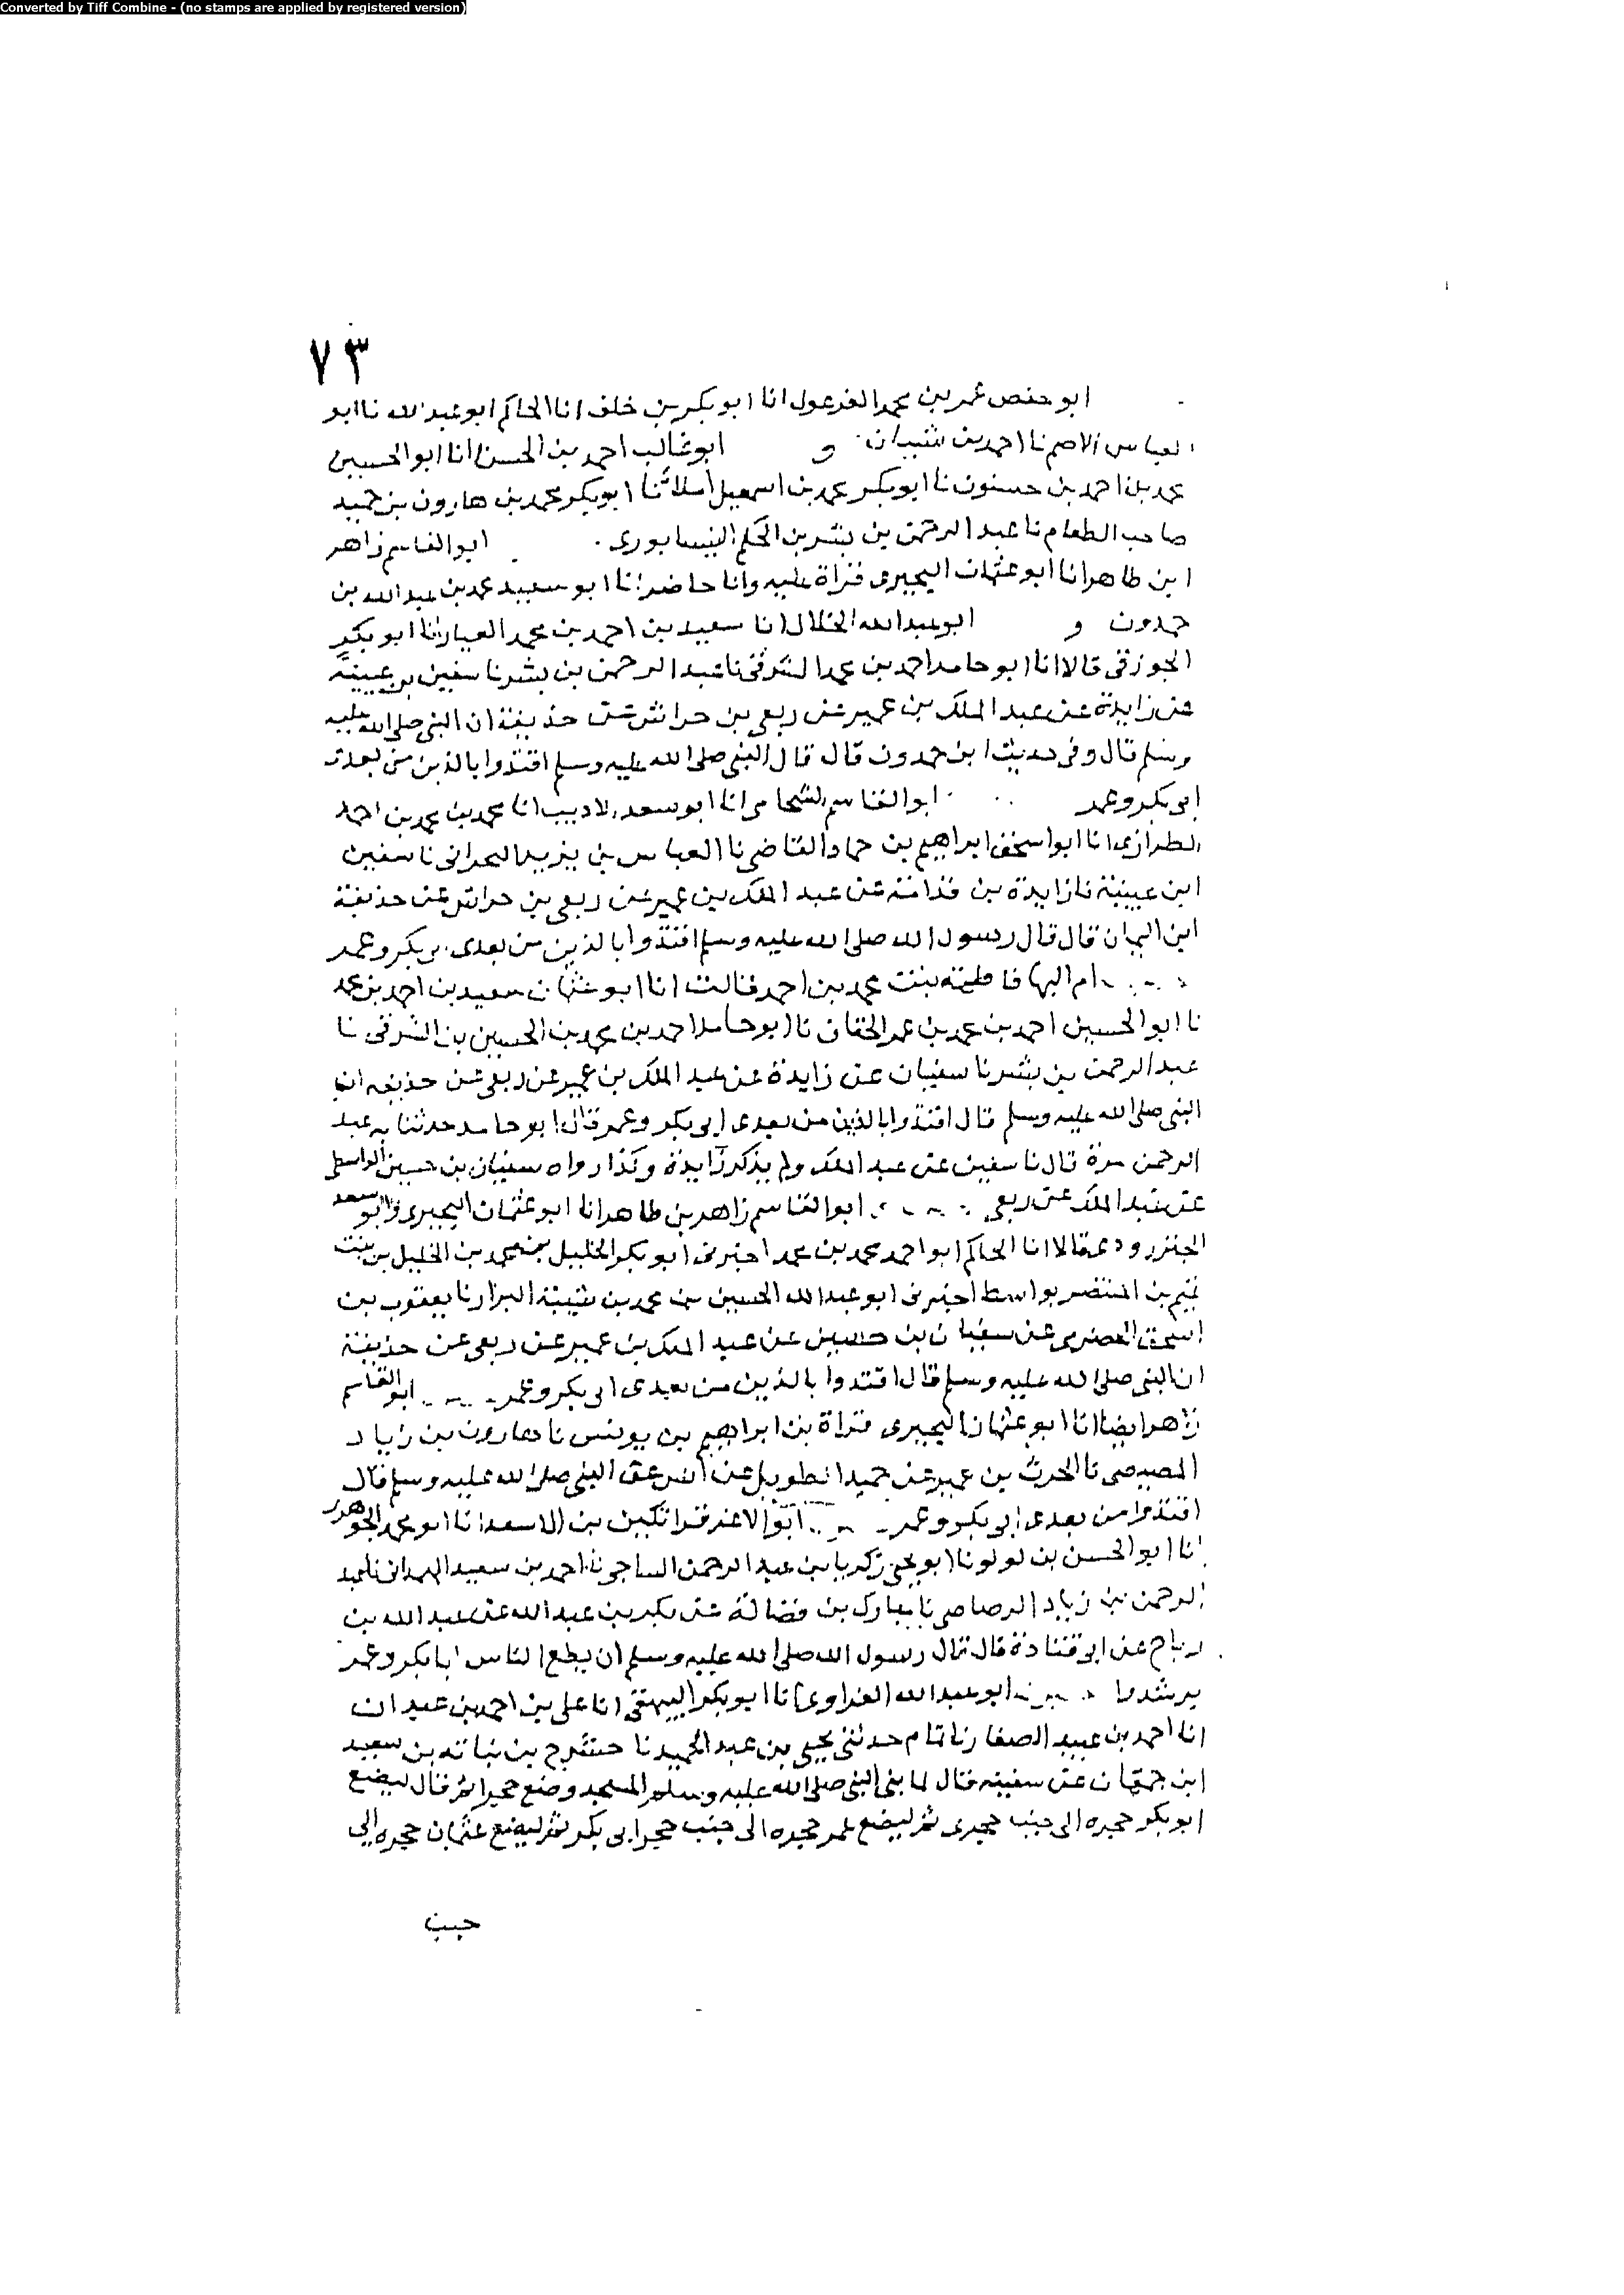 Converted by Tiff Combine - (no stamps are applied by registered version)
٧٣
ابو حفص عمر بن محمد الفرغولى انا ابو بكر بن خلف انا الحاكم ابو عبد الله نا ابو
العباس الاصم نا احمد بن شيبان و ابو غالب احمد بن الحسن انا ابو الحسين
محمد بن احمد بن حسنون نا ابو بكر محمد بن اسمعيل املا ثنا ابو بكر محمد بن هارون بن حميد
صاحب الطعام نا عبد الرحمن بن بشر بن الحكم النيسابورى ابو القاسم زاهر
ابن طاهر انا ابو عثمان البحيرى قراة عليه وانا حاضر انا ابو سعيد محمد بن عبد الله بن
حمدون و ابو عبد الله الخلال انا سعيد بن احمد بن محمد العيار انا ابو بكر
الجوزقى قالا انا ابو حامد احمد بن محمد الشرقى نا عبد الرحمن بن بشر نا سفين بن عيينة
عن زايدة عن عبد الملك بن عمير عن ربعى بن حراش عن حذيفة ان النبى صلى الله عليه
وسلم قال وفى حديث ابن حمدون قال قال النبى صلى الله عليه وسلم اقتدوا بالذين من بعدى
ابى بكر وعمر ابو القاسم الشحامى انا ابو سعد الاديب انا محمد بن محمد بن احمد
الطرازى انا ابو اسحق ابراهيم بن حماد القاضى نا العباس بن يزيد البحرانى نا سفين
ابن عيينة نا زايدة بن قدامة عن عبد الملك بن عمير عن ربعى بن حراش عن حذيفة
ابن اليمان قال قال رسول الله صلى الله عليه وسلم اقتدوا بالذين من بعدى بى بكر وعمر
ام البها فاطمة بنت محمد بن احمد قالت انا ابو عثمان سعيد بن احمد بن محمد
نا ابو الحسين احمد بن محمد بن عمر الخفان نا ابو حامد احمد بن محمد بن الحسين بن الشرقى نا
عبد الرحمن بن بشر نا سفيان عن زايدة عن عبد الملك بن عمير عن ربعى عن حذيفة ان
النبى صلى الله عليه وسلم قال اقتدوا بالذين من بعدى ابى بكر وعمر قال ابو حامد حدثنا به عبد
الرحمن مرة قال نا سفين عن عبد الملك ولم يذكر زايدة وكذا رواه سفيان بن حسين الواسطى
عن عبد الملك عن ربعى ابو القاسم زاهر بن طاهر انا ابو عثمان البحيرى وابو سعد
الجنزرودى قالا انا الحاكم ابو احمد محمد بن محمد اخبرنى ابو بكر الخليل بن محمد بن الخليل بن بنت
تميم بن المنتصر بواسط اخبرنى ابو عبد الله الحسين بن محمد بن شيبة البزار نا يعقوب بن
اسحق الحضرمى عن سفيان بن حسين عن عبد الملك بن عمير عن ربعى عن حذيفة
ان النبى صلى الله عليه وسلم قال اقتدوا بالذين من بعدى ابى بكر وعمر ابو القاسم
زاهر ايضا انا ابو عثمان البحيرى قراة بن ابراهيم بن يونس نا هارون بن زياد
المصيصى نا الحرث بن عمير عن حميد الطويل عن انس عن النبى صلى الله عليه وسلم قال
اقتدوا من بعدى ابى بكر وعمر ابو الاعز قراتكين بن الاسعد انا ابو محمد الجوهرى
انا ابو الحسن بن لولو نا ابو يحيى زكريا بن عبد الرحمن الساجى نا احمد بن سعيد الهمدانى نا عبد
الرحمن بن زياد الرصاصى نا مبارك بن فضالة عن بكر بن عبد الله عن عبد الله بن
رباح عن ابو قتادة قال قال رسول الله صلى الله عليه وسلم ان يطع الناس ابا بكر وعمر
يرشدوا ابو عبد الله الفراوى نا ابو بكر البيهقى انا على بن احمد بن عبدان
انا احمد بن عبيد الصفار نا تمام حدثنى يحيى بن عبد الحميد نا حشرج بن نباته بن سعيد
ابن جمهان عن سفينة قال لما بنى النبى صلى الله عليه وسلم المسجد وضع حجرا ثم قال ليضع
ابو بكر حجره الى جنب حجرى ثم ليضع عمر حجره الى جنب حجر ابى بكر ثم ليضع عثمان حجره الى
جنب